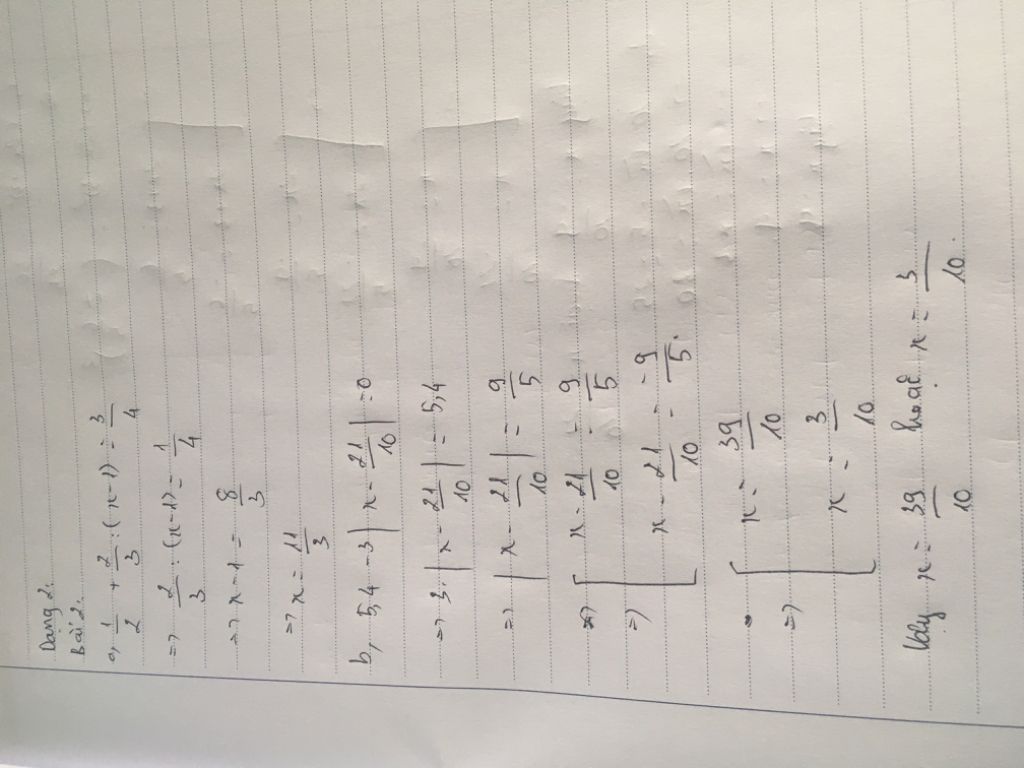 Dạng 2:
Bài 2:
a, 1/2 + 2/3 : (x - 1) = 3/4
=> 2/3 : (x - 1) = 1/4
=> x - 1 = 8/3
=> x = 11/3
b, 5,4 - 3 | x - 21/10 | = 0
=> 3. | x - 21/10 | = 5,4
=> | x - 21/10 | = 9/5
=> [ x - 21/10 = 9/5
x - 21/10 = -9/5.
=> [ x = 39/10
x = 3/10
Vậy x = 39/10 hoặc x = 3/10.